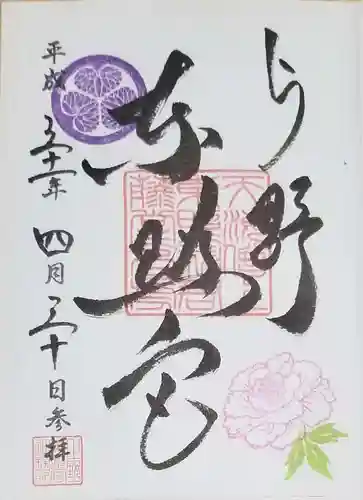 上野
東照宮
平成三十一年四月三十日参拝